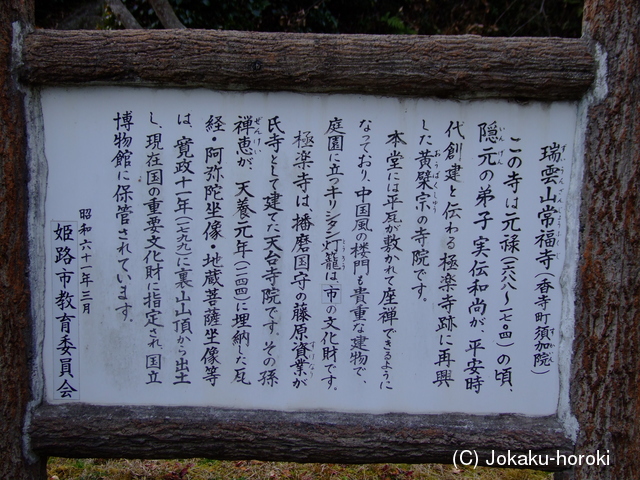 瑞雲山常福寺(香寺町須加院)
この寺は元禄(一六八八〜一七〇四)の頃、
隠元の弟子 実伝和尚が、平安時
代創建と伝わる極楽寺跡に再興
した黄檗宗の寺院です。
本堂には平瓦が敷かれて座禅できるように
なっており、中国風の楼門も貴重な建物で、
庭園に立つキリシタン灯籠は、市の文化財です。
極楽寺は播磨国守の藤原資業が
氏寺として建てた天台寺院です。その孫
禅恵が、天養元年(一一四四)に埋納した瓦
経・阿弥陀坐像・地蔵菩薩坐像等
は、寛政十一年(一七九九)に裏山山頂から出土
し、現在国の重要文化財に指定され、国立
博物館に保管されています。
昭和六十一年三月
姫路市教育委員会
(C) Jokaku-horoki